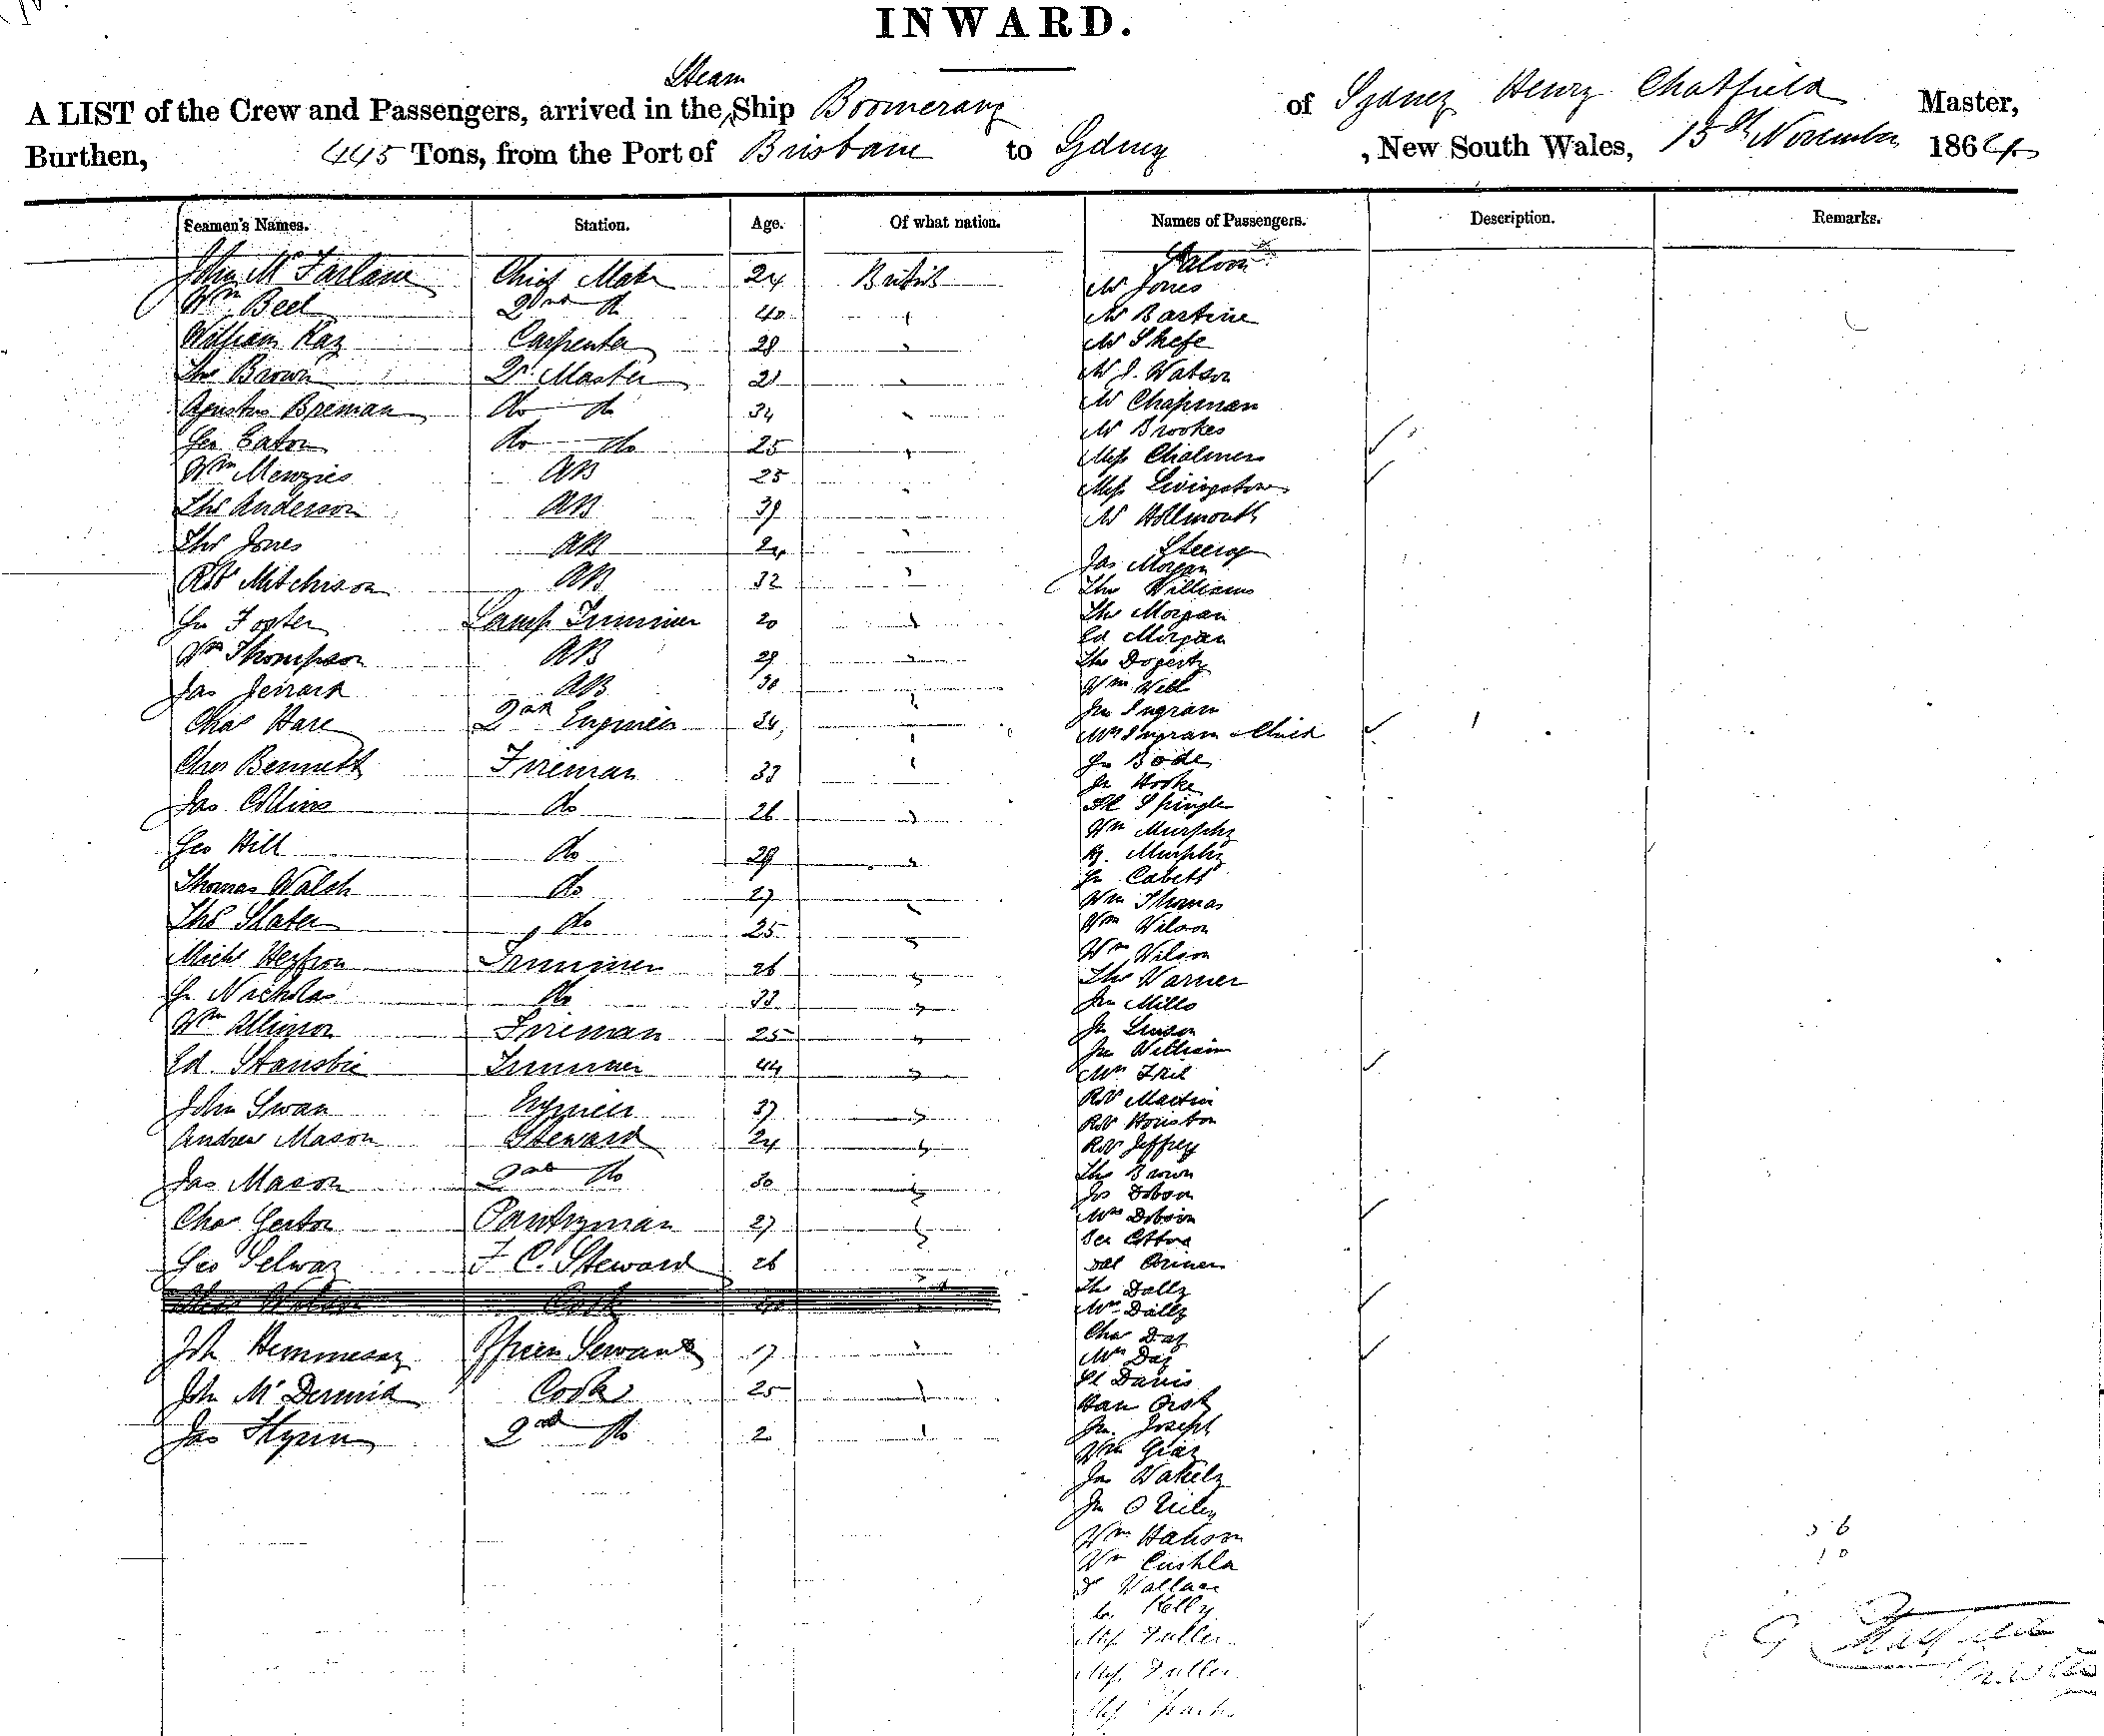 INWARD.
Steam
A LIST of the Crew and Passengers, arrived in the ^ Ship Boomerang of Sydney Henry Chatfield Master,
Burthen, 445 Tons, from the Port of Brisbane to Sydney , New South Wales, 15th November 1864
Seamen's Names. Station. Age. Of what nation. Names of Passengers. Description. Remarks.
Saloon
John McFarlane Chief Mate 24 British Mr Jones
Wm Bell 2nd do 40 Mr Bartine
William Kay Carpenter 28 Mr Skefe
Thos Brown Qr Master 21 Mr J. Watson
Agustus Breman do do 34 Mr Chapman
Geo Eaton do do 25 Mr Brookes
Wm Menzies AB 25 Miss Chalmers
Thos Anderson AB 39 Miss Livingstone
Thos Jones AB 24 Mr Hollmouth
Steerage
Jas Morgan
Robt Mitchison AB 32 Thos Williams
Jn Foster Lamp Trimmer 20 Thos Morgan
Ed Morgan
Wm Thompson AB 29 Thos Dogerty
Jas Jerrard AB 30 Wm Well
Chas Hare 2nd Engineer 34 Jn Ingram
Mrs Ingram & Child
Chas Bennett Fireman 33 Jn Bode
Jn Hooke
Jas Collins do 26 Spingle
Wm Murphy
Geo Hill do 29 Murphy
Thomas Walsh do 27 Jn Cabett
Wm Thomas
Thos Slater do 25 Wm Wilson
Michl Hezfron Trimmer 26 Wm Wilson
Thos Warner
Jn Nicholas do 33 Jn Mills
Wm Allinson Fireman 25 Jn
Jn William
Ed. Stansbie Trimmer 44 Mrs
Robt Martin
John Swan Engineer 37 Robt Houston
Andrew Mason Steward 24 Robt Jeffrey
Thos Brown
Jas Mason 2nd do 30 Jos Dobson
Mrs Dobson
Chas Gerton Pantryman 27
Geo Selway F C. Steward 26
Cook Thos Dally
Mrs Dally
Chas Day
Joh Hemmesay Officers Servant 17 Mrs Day
Davis
Joh McDermid Cook 25
Jn. Joseph
Jas Flynn 2nd do 2 Wm Gray
Jas Wakely
Jn O Riley
Wm Hanson
Wm Cushla
Wallace
Kelly
Miss Fuller
Miss Fuller
Miss
36
10